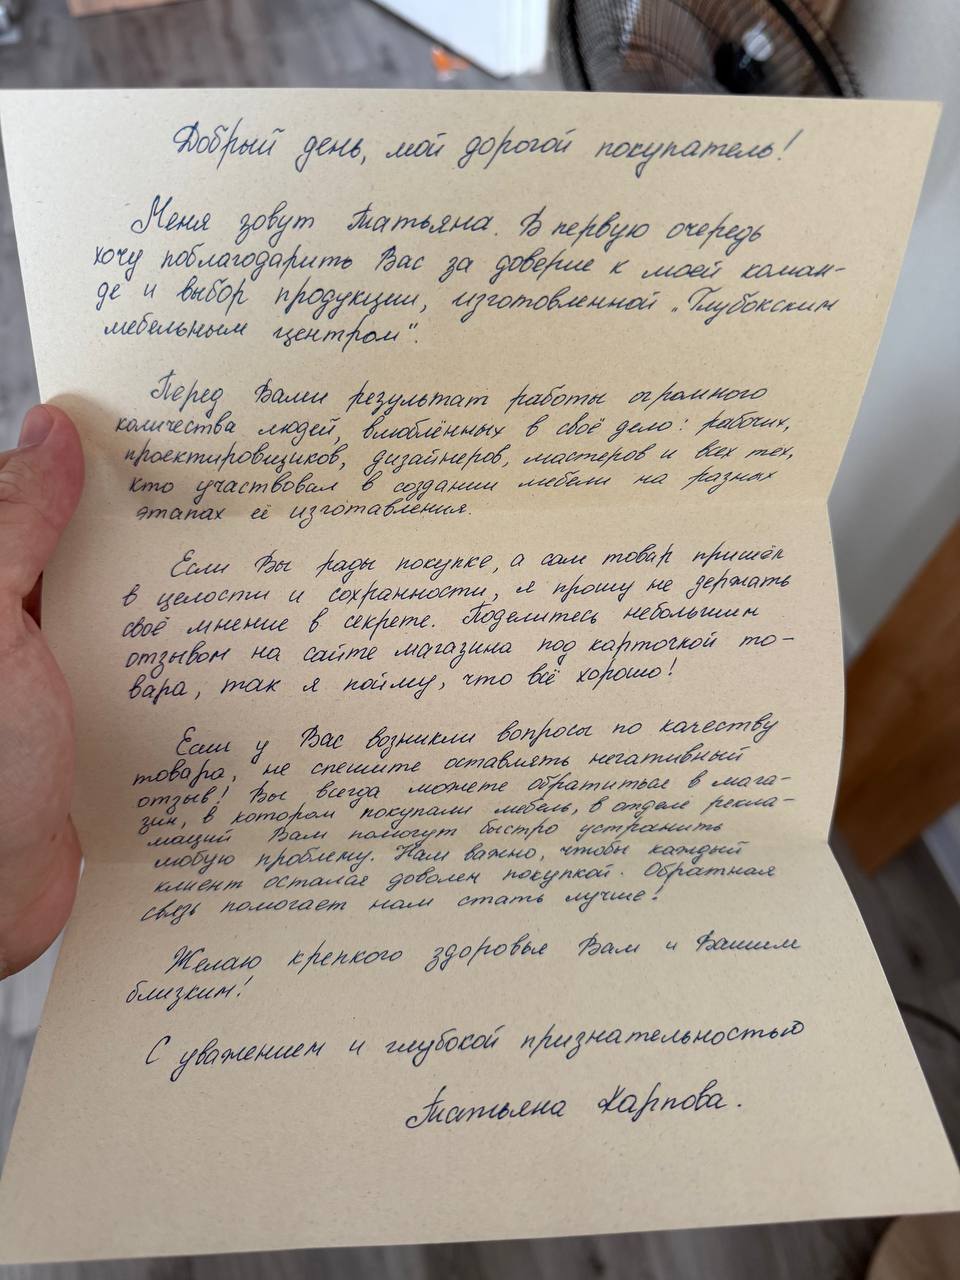 Добрый день, мой дорогой покупатель!
Меня зовут Татьяна. В первую очередь
хочу поблагодарить Вас за доверие к моей коман-
де и выбор продукции, изготовленной „Глубокским
мебельным центром".
Перед Вами результат работы огромного
количества людей, влюблённых в своё дело: рабочих,
проектировщиков, дизайнеров, мастеров и всех тех,
кто участвовал в создании мебели на разных
этапах её изготавления.
Если Вы рады покупке, а сам товар пришёл
в целости и сохранности, я прошу не держать
своё мнение в секрете. Поделитесь небольшим
отзывом на сайте магазина под карточкой то-
вара, так я пойму, что всё хорошо!
Если у Вас возникли вопросы по качеству
товара, не спешите оставлять негативный
отзыв! Вы всегда можете обратиться в мага-
зин, в котором покупали мебель, в отделе рекла-
маций Вам помогут быстро устранить
любую проблему. Нам важно, чтобы каждый
клиент остался доволен покупкой. Обратная
связь помогает нам стать лучше!
Желаю крепкого здоровья Вам и Вашим
близким!
С уважением и глубокой признательностью
Татьяна Карпова.